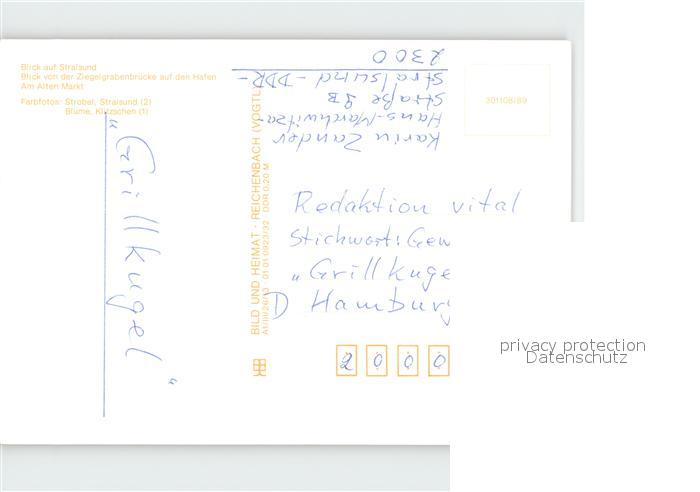 Blick auf Stralsund
Blick von der Ziegelgrabenbrücke auf den Hafen
Am Alten Markt
Farbfotos: Strobel, Stralsund (2)
Blume, Klitzschen (1)
"Grillkugel"
BILD UND HEIMAT · REICHENBACH (VOGTL
A1/III/26/13 01 01 0923/32 DDR 0,20 M
Karin Zander
Hans-Marchwitza-
Straße 9B
Stralsund - DDR -
2300
301108/89
Redaktion vital
Stichwort: Gew
„Grillkuge
D Hamburg
2000
privacy protection
Datenschutz